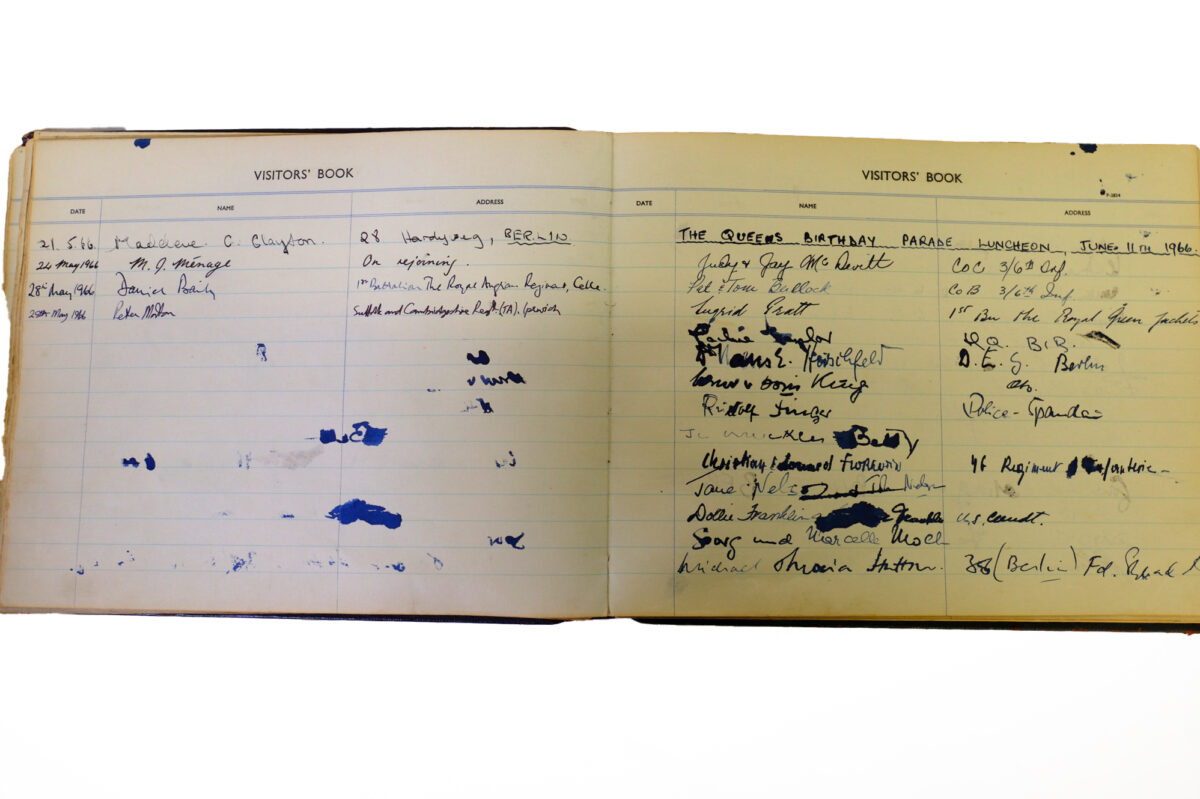 VISITORS' BOOK
DATE NAME ADDRESS
21.5.66. Madeleve C. Clayton. 28 Hardyweg, BERLIN
24 May 1966 M. J. Ménage On rejoining.
28th May 1966 Daniel 1st Battalion The Royal Anglian Regiment, Celle.
28th May 1966 Peter Suffolk and Cambridgeshire Regt (TA). Ipswich
VISITORS' BOOK
P-2824
DATE NAME ADDRESS
THE QUEENS BIRTHDAY PARADE LUNCHEON, JUNE 11TH 1966.
Judy & Jay McDevitt Co C 3/6th Inf.
Pat & Tom Bullock Co B 3/6th Inf.
Ingrid Gratt 1st Bn the Royal Green Jackets
Taylor H.Q. B.I.B.
Hans E. Hirschfeld D.E.G. Berlin
and Doris King do.
Rudolf Finger Police - Spandau
Betty
Christian Edouard Florentin 46 Regiment Infanterie -
Jane Nelson and Nelson
Dollie Franklin Franklin U.S. Comdt.
Georg und Marcelle Moch
Michael & Maria Hutton. 38 (Berlin) Fd.